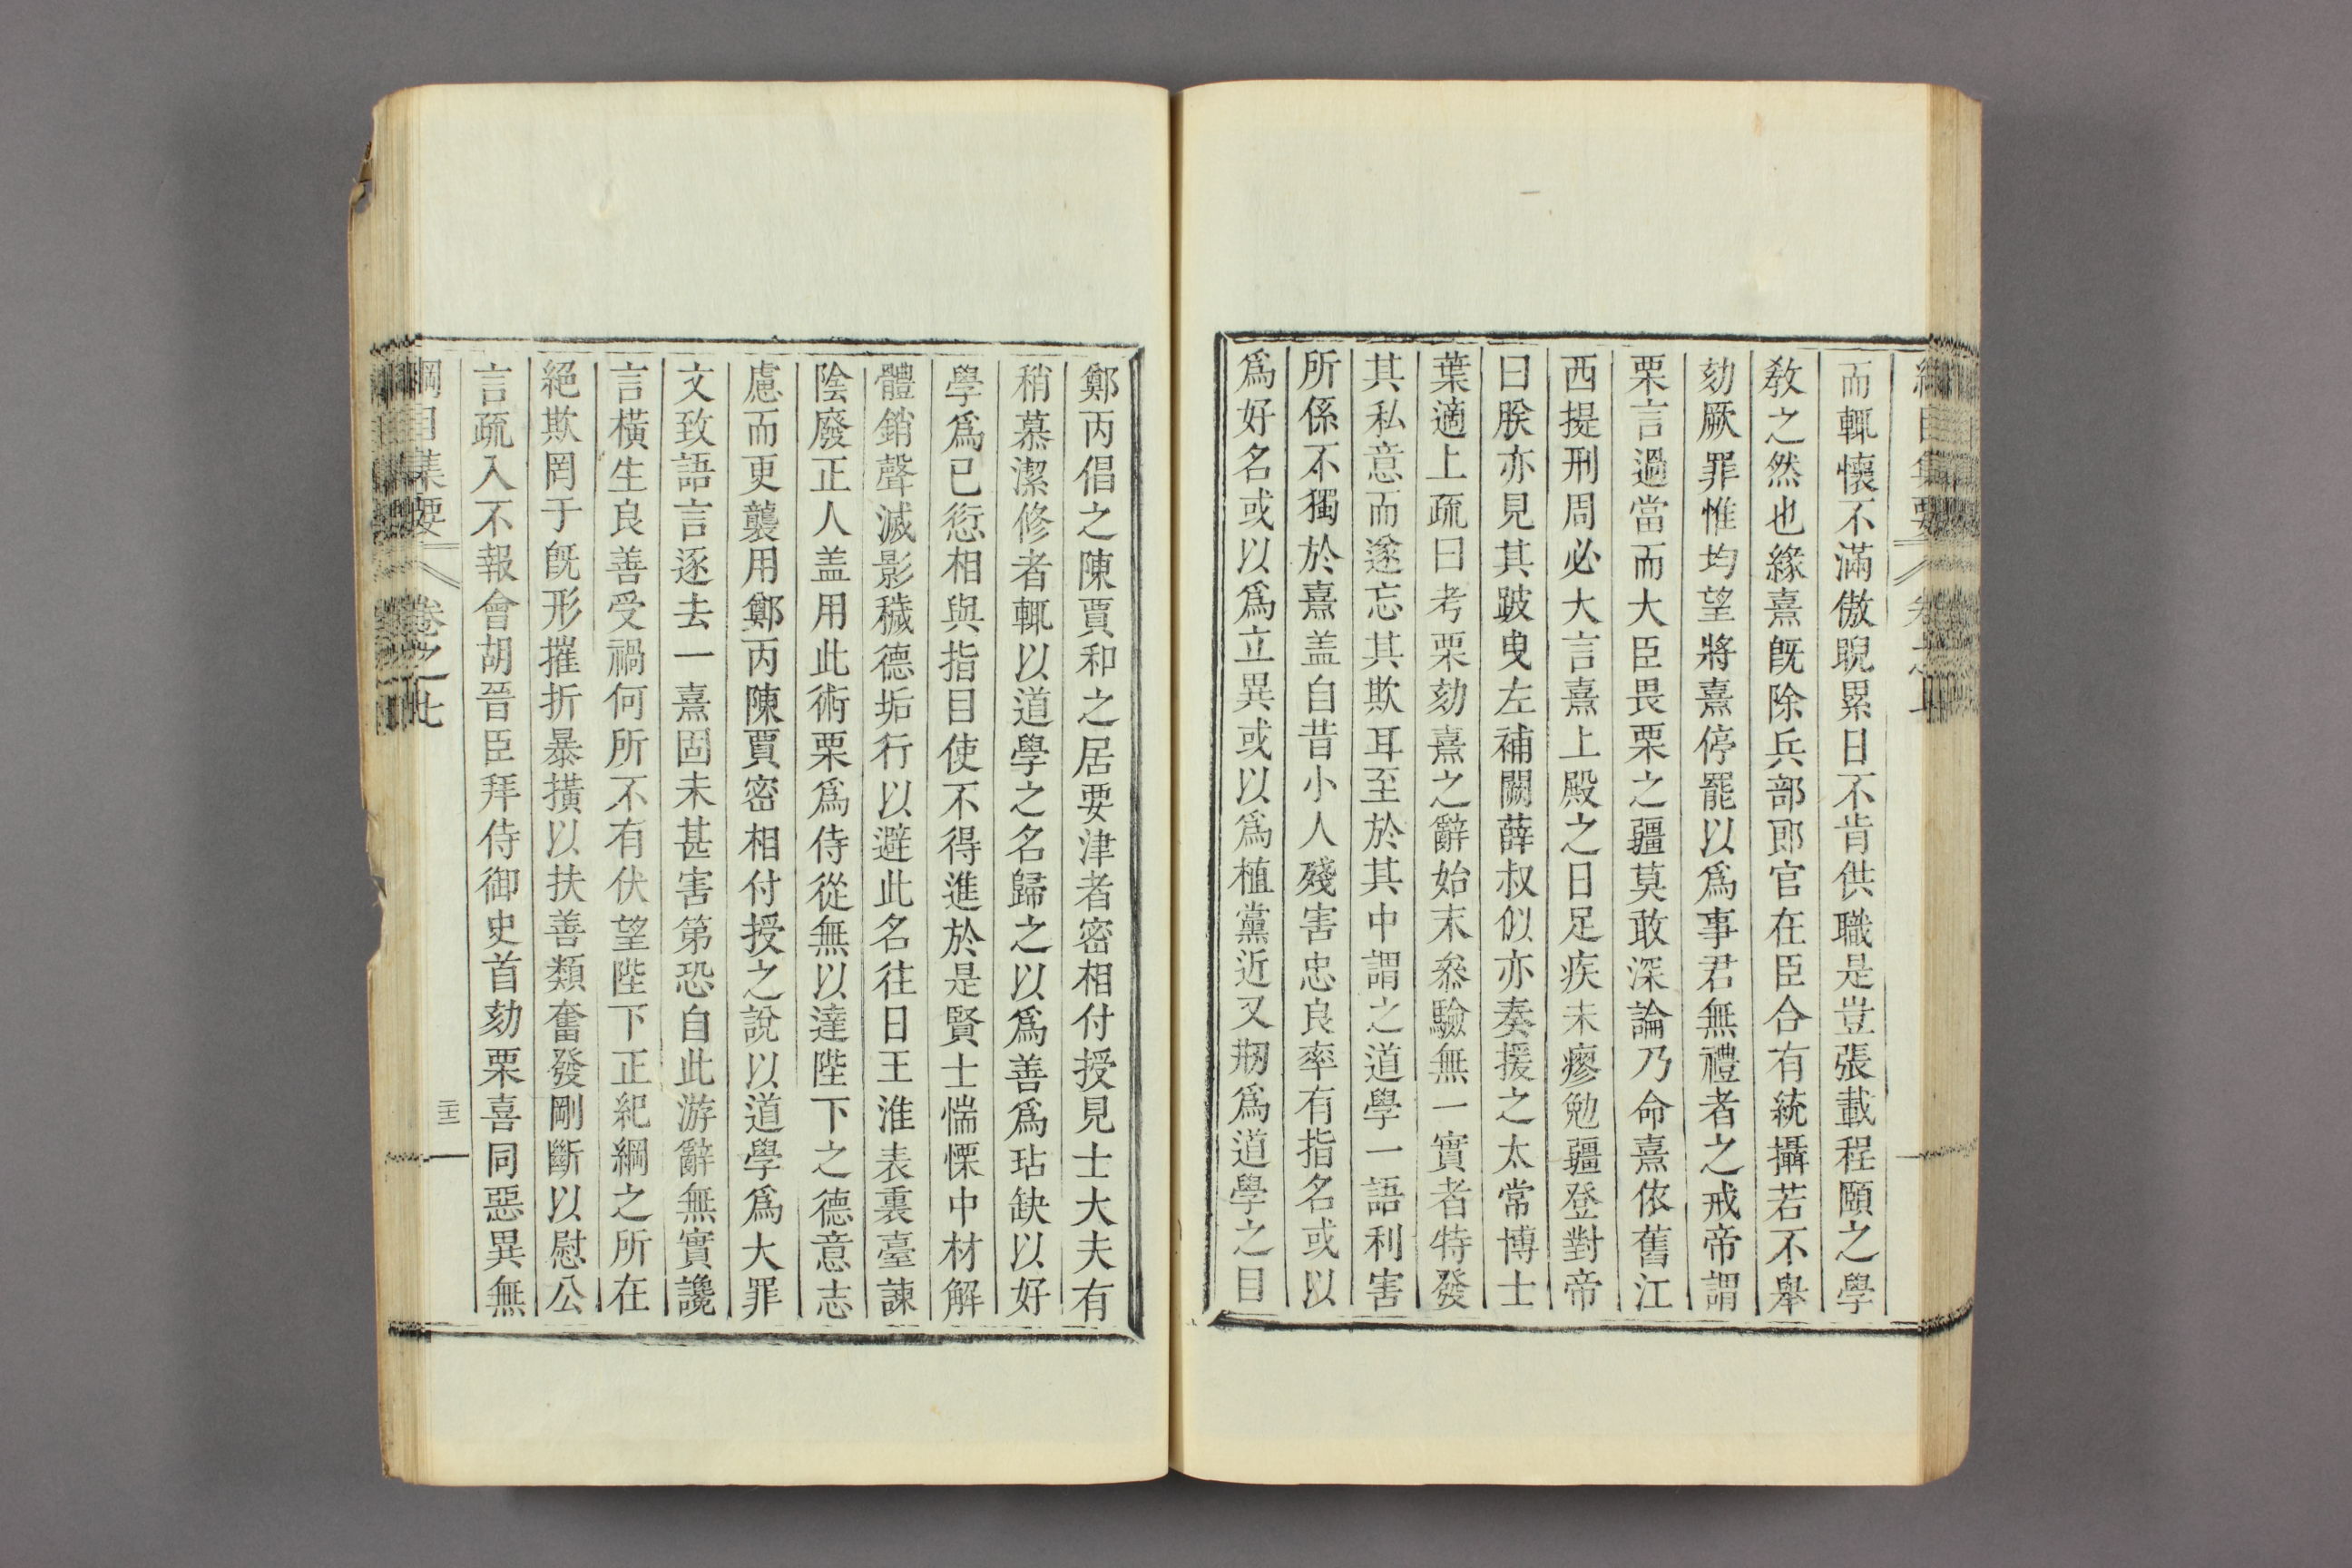 而輒懷不滿傲睨累日不肯供職是豈張載程頤之學
教之然也緣熹旣除兵部郎官在臣合有統攝若不舉
劾厥罪惟均望將熹停罷以爲事君無禮者之戒帝謂
栗言過當而大臣畏栗之疆莫敢深論乃命熹依舊江
西提刑周必大言熹上殿之日足疾未瘳勉疆登對帝
曰朕亦見其跛曳左補闕薛叔似亦奏援之太常博士
葉適上疏曰考栗劾熹之辭始末叅驗無一實者特發
其私意而遂忘其欺耳至於其中謂之道學一語利害
所係不獨於熹盖自昔小人殘害忠良率有指名或以
爲好名或以爲立異或以爲植黨近又剏爲道學之目
鄭丙倡之陳賈和之居要津者密相付授見士大夫有
稍慕潔修者輒以道學之名歸之以爲善爲玷缺以好
學爲已愆相與指目使不得進於是賢士惴慄中材解
體銷聲滅影穢德垢行以避此名往日王淮表裏臺諫
陰廢正人盖用此術栗爲侍從無以達陛下之德意志
慮而更襲用鄭丙陳賈密相付授之說以道學爲大罪
文致語言逐去一熹固未甚害第恐自此游辭無實讒
言橫生良善受禍何所不有伏望陛下正紀綱之所在
絕欺罔于旣形摧折暴橫以扶善類奮發剛斷以慰公
言疏入不報會胡晉臣拜侍御史首劾栗喜同惡異無
綱目集要 卷之 三十三